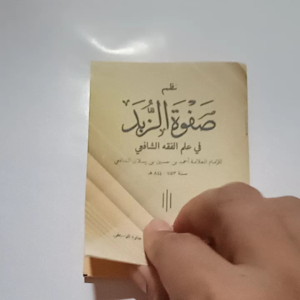 نظم
صفوة الزبد
في علم الفقه الشافعي
للإمام العلامة أحمد بن حسين بن رسلان الشافعي
سنة ٧٧٣ ٨٤٤ هـ